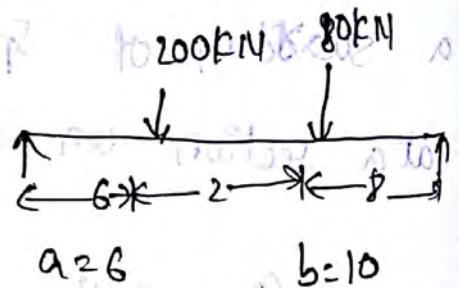 200KN 80KN
6 2 8
a=6 b=10